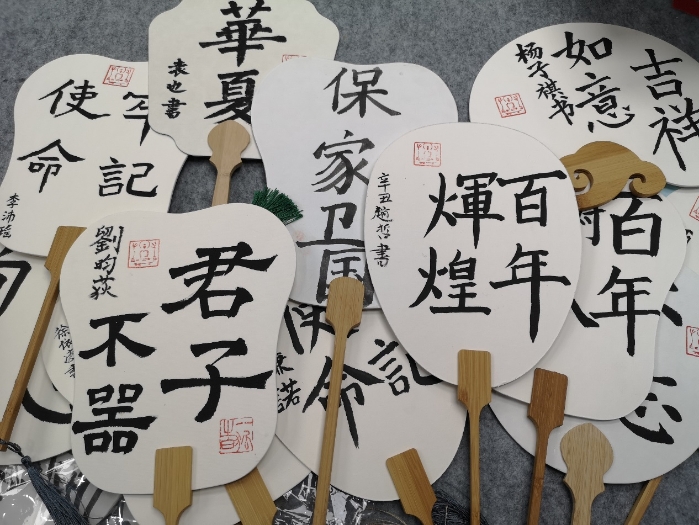 華夏
袁也書
牢記
使命
保家卫国
吉祥
如意
杨子祺书
百年
輝煌
辛丑趙哲書
君子
不器
劉昀荻
百年
記
命